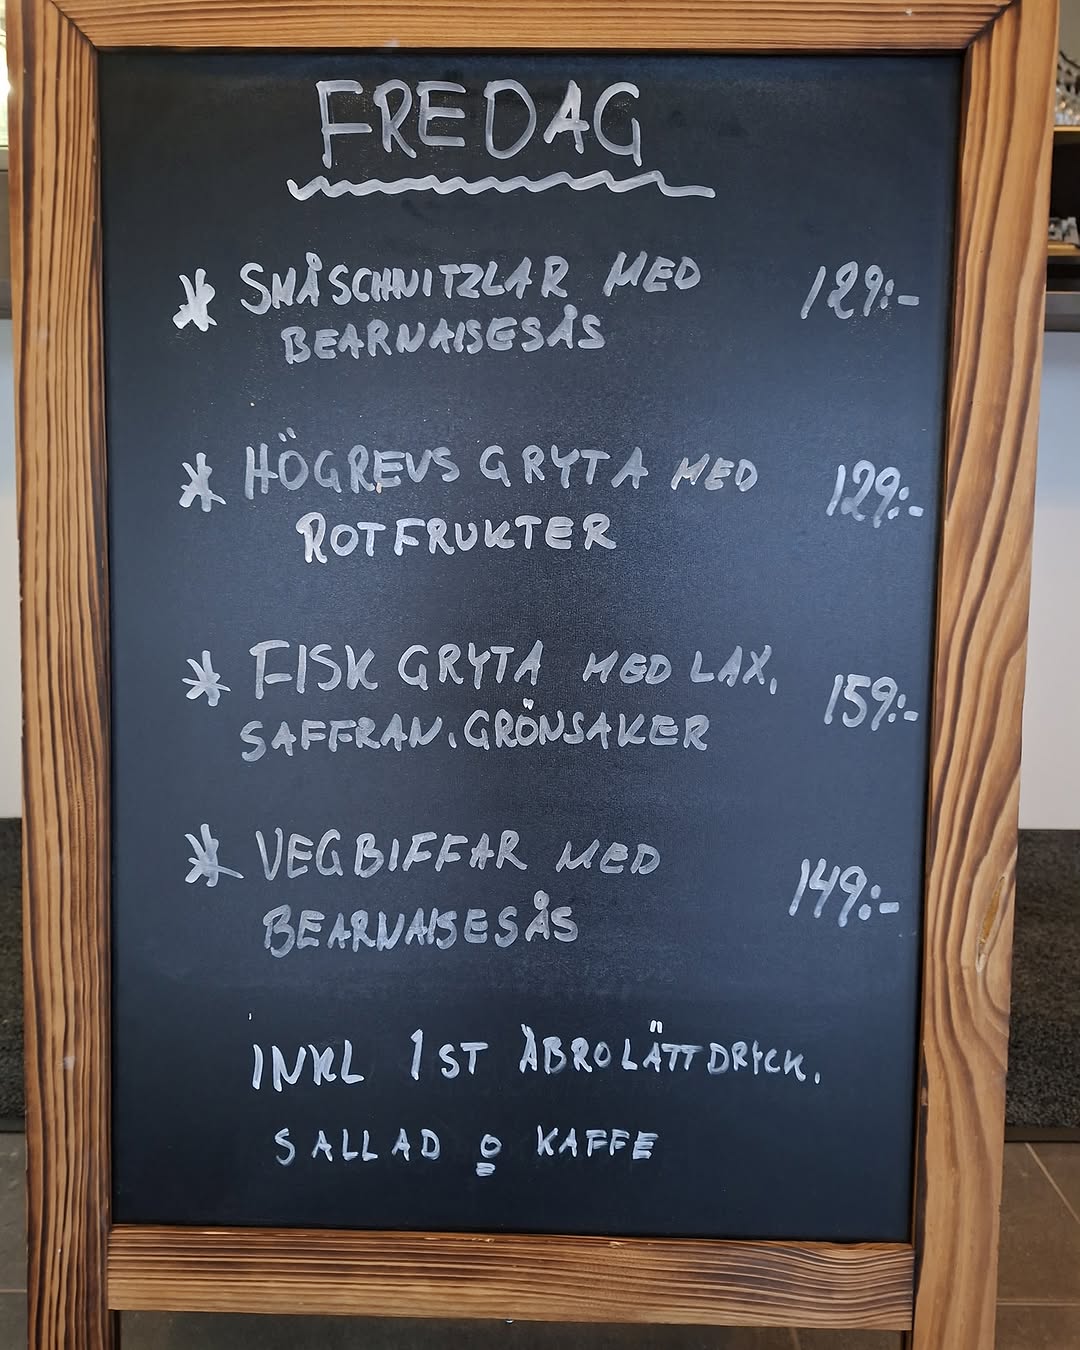 FREDAG
* SMÅSCHNITZLAR MED 129:-
BEARNAISESÅS
* HÖGREVS GRYTA MED 129:-
ROTFRUKTER
* FISK GRYTA MED LAX, 159:-
SAFFRAN, GRÖNSAKER
* VEGBIFFAR MED 149:-
BEARNAISESÅS
INKL 1ST ÅBRO LÄTTDRYCK,
SALLAD o KAFFE